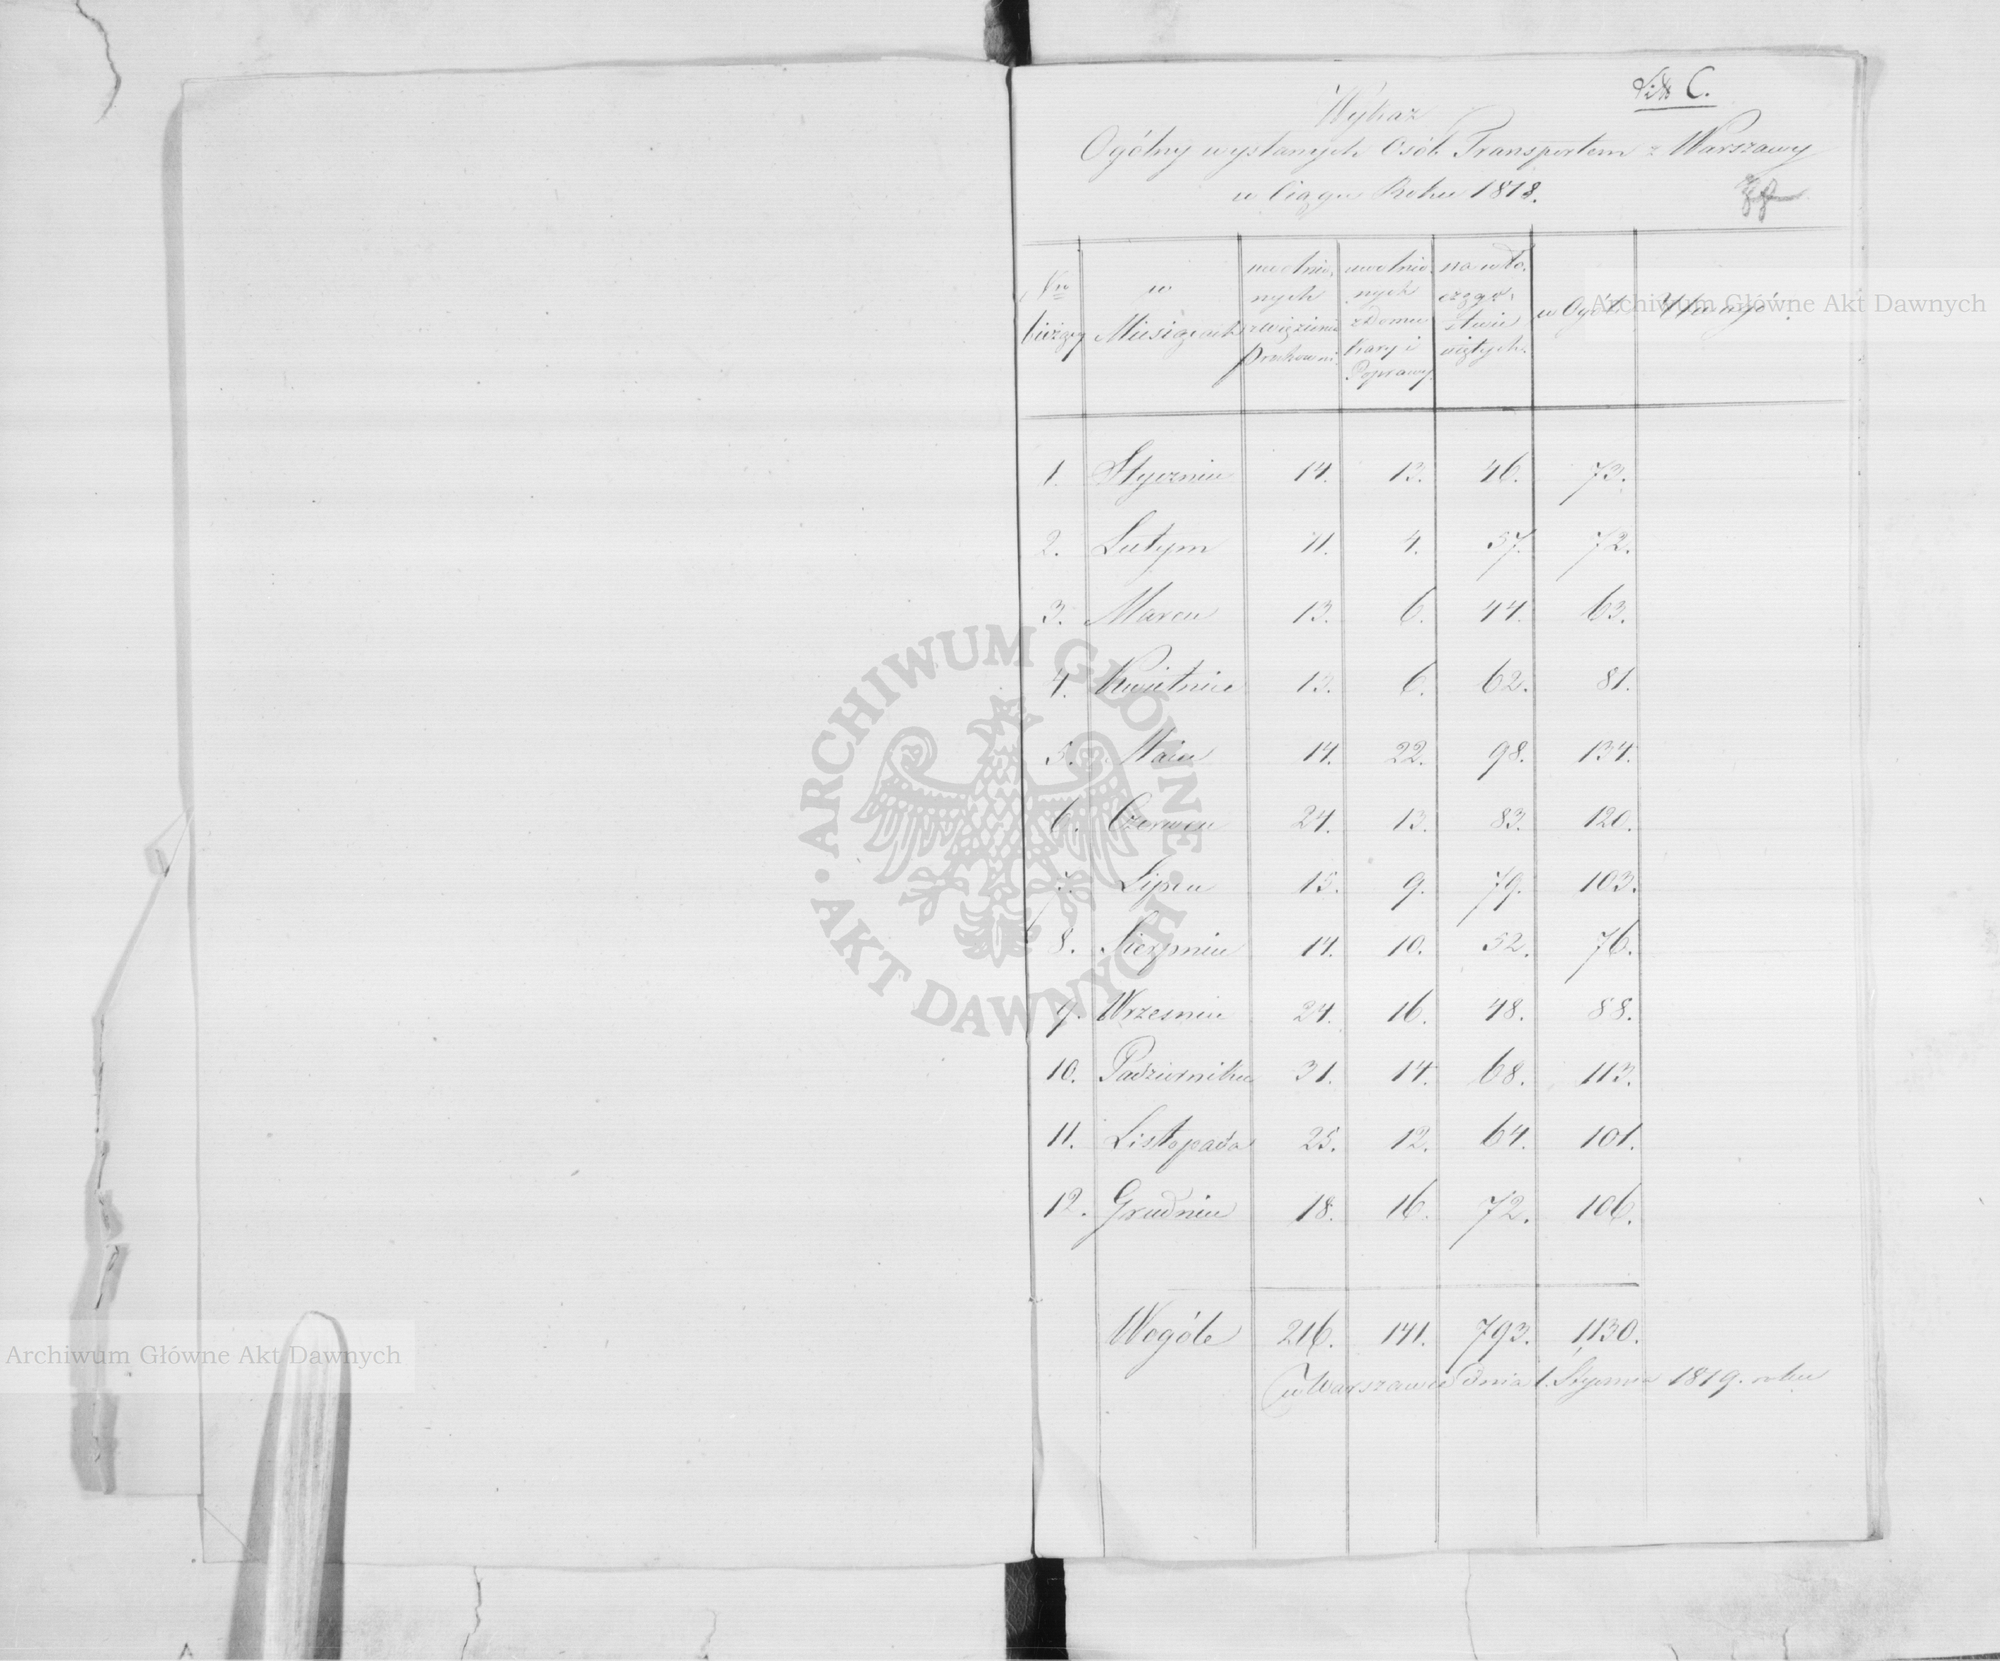 Litt C.
Wykaz
Ogólny wysłanych Osób Transportem z Warszawy
w Ciągu Roku 1818.
Nro bieżący | w Miesiącach | uwolnionych z więzienia Prochowni | uwolnionych z Domu Kary i Poprawy | na włóczęgostwie ujętych | w Ogóle | Uwagi
1. Styczniu 14. 13. 46. 73.
2. Lutym 11. 4. 57. 72.
3. Marcu 13. 6. 44. 63.
4. Kwietniu 13. 6. 62. 81.
5. Maiu 14. 22. 98. 134.
6. Czerwcu 24. 13. 83. 120.
7. Lipcu 15. 9. 79. 103.
8. Sierpniu 14. 10. 52. 76.
9. Wrzesniu 24. 16. 48. 88.
10. Padzierniku 31. 14. 68. 113.
11. Listopada 25. 12. 64. 101.
12. Grudniu 18. 16. 72. 106.
Wogóle 216. 141. 793. 1130.
w Warszawie dnia 1. Stycznia 1819. roku
Archiwum Główne Akt Dawnych
Archiwum Główne Akt Dawnych
ARCHIWUM GŁÓWNE AKT DAWNYCH